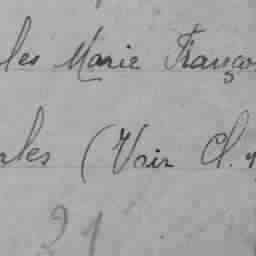 les Marie Franço
rles (Voir Cl.
21